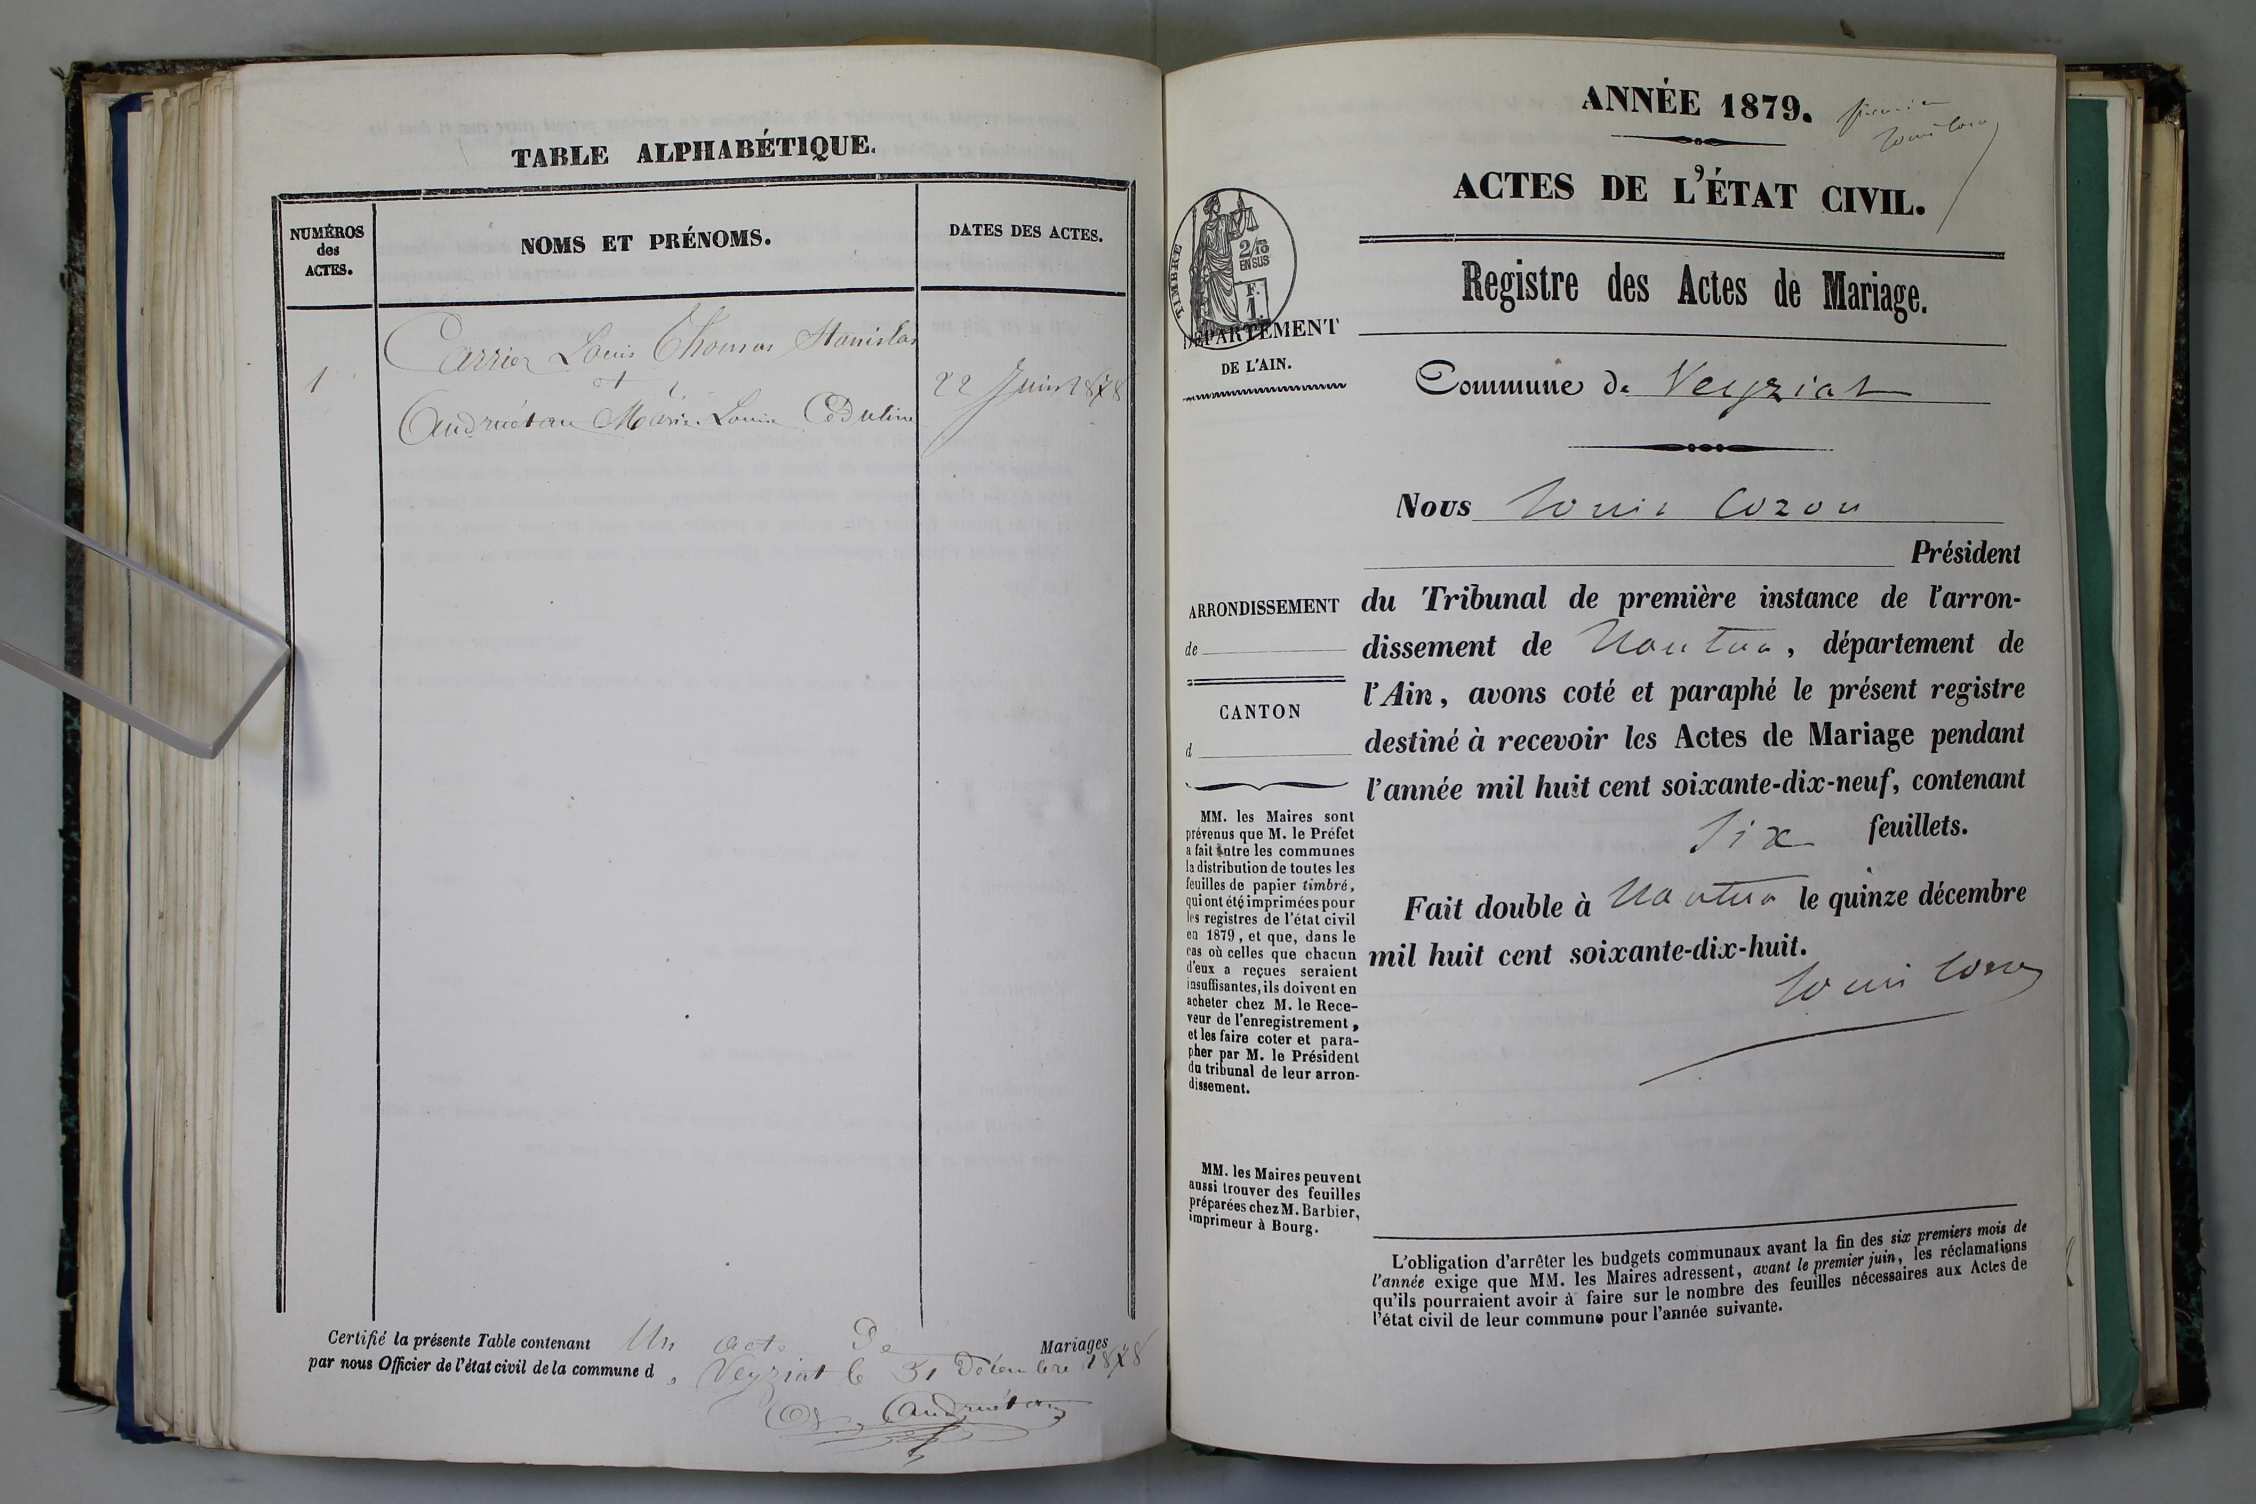 TABLE ALPHABÉTIQUE.
NUMÉROS
des
ACTES.
NOMS ET PRÉNOMS.
DATES DES ACTES.
Carrier Louis Thomas Stanislas
1
et
22 Juin 1878
Andruétan Marie Louise
Certifié la présente Table contenant Un acte De Mariages
par nous Officier de l'état civil de la commune d, Veyziat le 31 Décembre 1878
Andruétan
ANNÉE 1879.
premier
Louis Cozon
ACTES DE L'ÉTAT CIVIL.
TIMBRE
2/10
EN SUS
F.
1.
Registre des Actes de Mariage.
DÉPARTEMENT
DE L'AIN.
Commune de Veyziat
Nous Louis Cozon
Président
ARRONDISSEMENT
de
CANTON
d
du Tribunal de première instance de l'arron-
dissement de Nantua, département de
l'Ain, avons coté et paraphé le présent registre
destiné à recevoir les Actes de Mariage pendant
l'année mil huit cent soixante-dix-neuf, contenant
Six feuillets.
Fait double à Nantua le quinze décembre
mil huit cent soixante-dix-huit.
Louis Cozon
MM. les Maires sont
prévenus que M. le Préfet
a fait entre les communes
la distribution de toutes les
feuilles de papier timbré,
qui ont été imprimées pour
les registres de l'état civil
en 1879, et que, dans le
cas où celles que chacun
d'eux a reçues seraient
insuffisantes, ils doivent en
acheter chez M. le Rece-
veur de l'enregistrement,
et les faire coter et para-
pher par M. le Président
du tribunal de leur arron-
dissement.
MM. les Maires peuvent
aussi trouver des feuilles
préparées chez M. Barbier,
imprimeur à Bourg.
L'obligation d'arrêter les budgets communaux avant la fin des six premiers mois de
l'année exige que MM. les Maires adressent, avant le premier juin, les réclamations
qu'ils pourraient avoir à faire sur le nombre des feuilles nécessaires aux Actes de
l'état civil de leur commune pour l'année suivante.